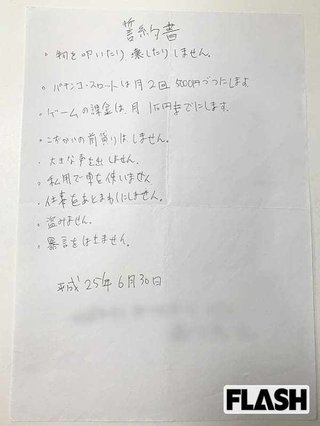 誓約書
・物を叩いたり壊したりしません。
・パチンコ・スロットは月2回5000円づつにします
・ゲームの課金は月1万円までにします。
・こづかいの前貸りはしません。
・大きな声を出しません。
・私用で車を使いません
・仕事をあとまわしにしません。
・盗みません。
・暴言をはきません。
平成25年6月30日
FLASH